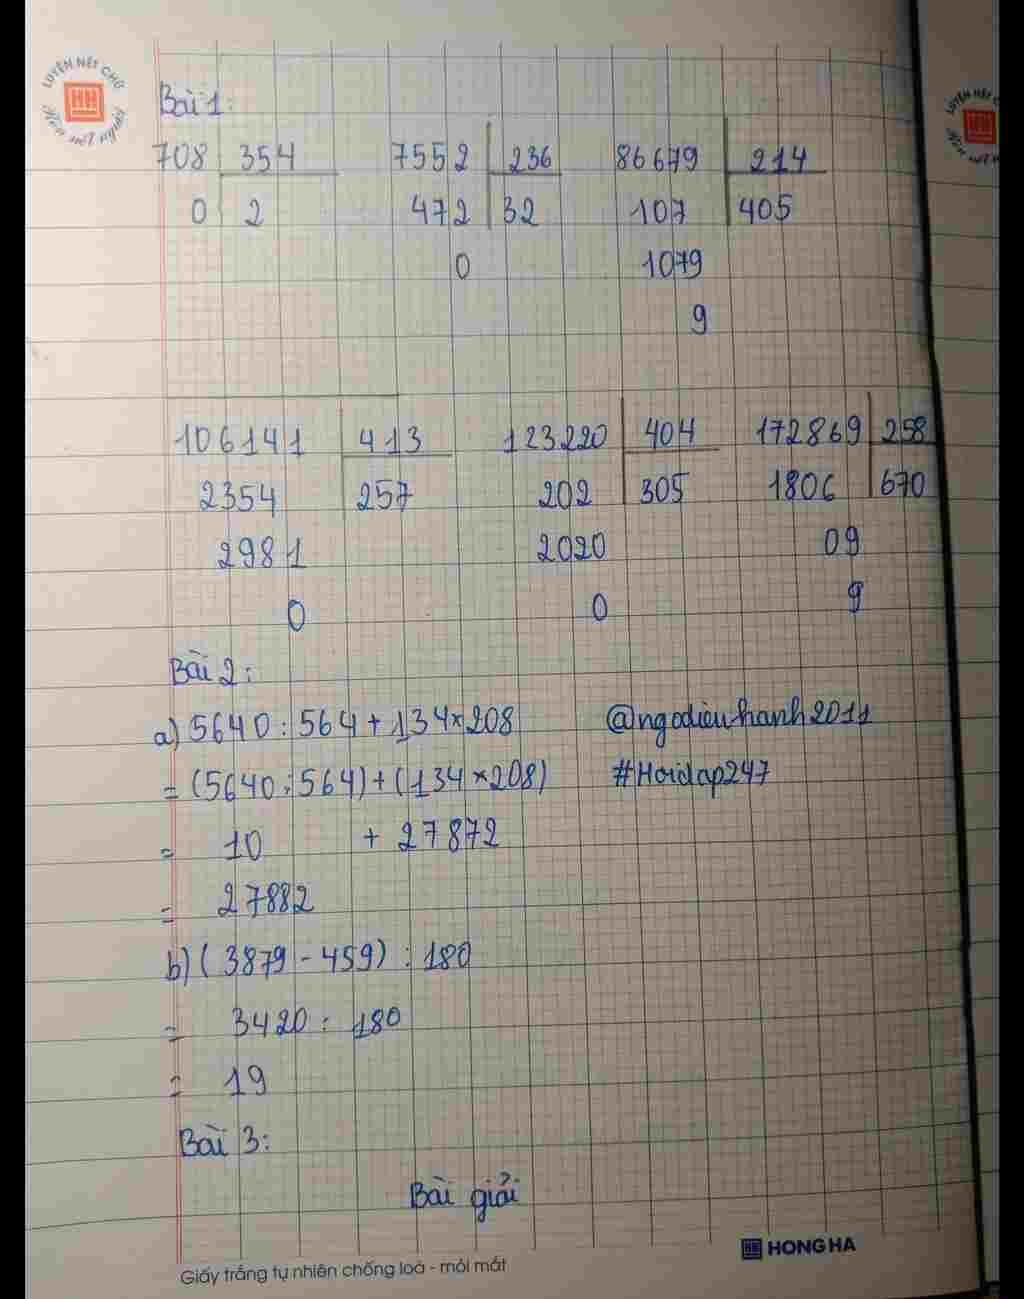 LUYỆN NÉT CHỮ
HH
Rèn nết người
LUYỆN NÉT C
HH
Bài 1:
708 354 7552 236 86679 214
0 2 472 32 107 405
0 1079
9
106141 413 123220 404 172869 258
2354 257 202 305 1806 670
2981 2020 09
0 0 9
Bài 2:
a) 5640 : 564 + 134 × 208 @ngodieuhanh2011
= (5640 : 564) + (134 × 208) #Hoidap247
= 10 + 27872
= 27882
b) (3879 - 459) : 180
= 3420 : 180
= 19
Bài 3:
Bài giải
HH HONG HA
Giấy trắng tự nhiên chống loá - mỏi mắt